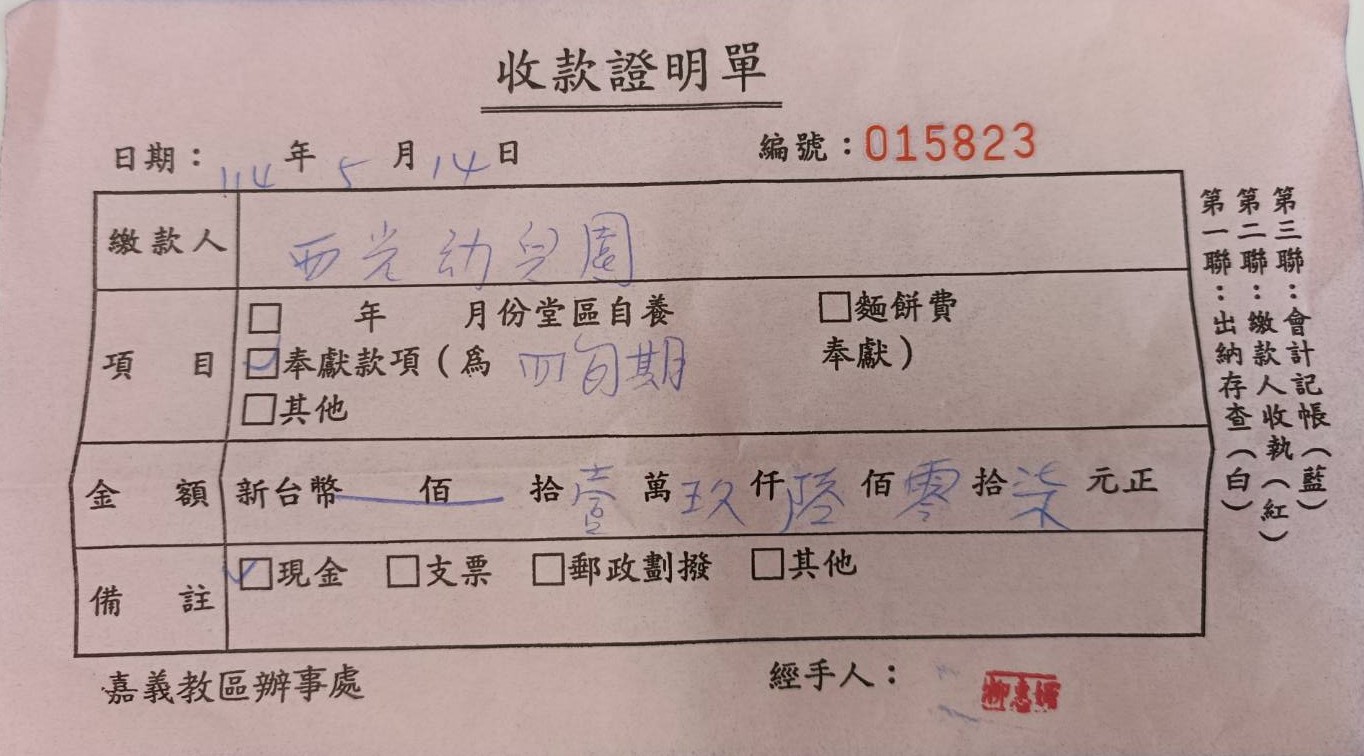 收款證明單
日期：114年5月14日
編號：015823
繳款人 西光幼兒園
項目 □ 年 月份堂區自養 □麵餅費
☑奉獻款項（為四旬期奉獻）
□其他
金額 新台幣 佰 拾壹萬玖仟陸佰零拾柒元正
備註 ☑現金 □支票 □郵政劃撥 □其他
嘉義教區辦事處
經手人：
第一聯：出納存查（白）
第二聯：繳款人收執（紅）
第三聯：會計記帳（藍）